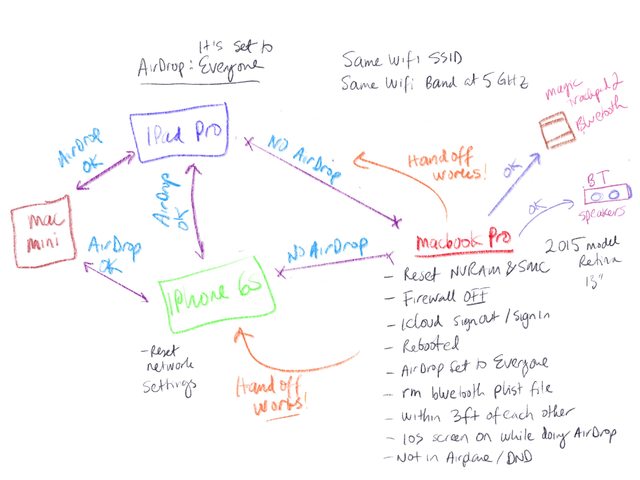 It's set to
AirDrop: Everyone
Same Wifi SSID
Same Wifi Band at 5 GHz
magic
trackpad 2
Bluetooth
iPad Pro
AirDrop
OK
NO AirDrop
Handoff
Works!
OK
BT
speakers
OK
mac
mini
AirDrop
OK
AirDrop
OK
NO AirDrop
Macbook Pro
2015 model
Retina
13"
iPhone 6s
- Reset
network
settings
Handoff
Works!
- Reset NVRAM & SMC
- Firewall OFF
- iCloud Signout / Signin
- Rebooted
- AirDrop Set to Everyone
- rm bluetooth plist file
- within 3ft of each other
- iOS screen on while doing AirDrop
- Not in Airplane / DND